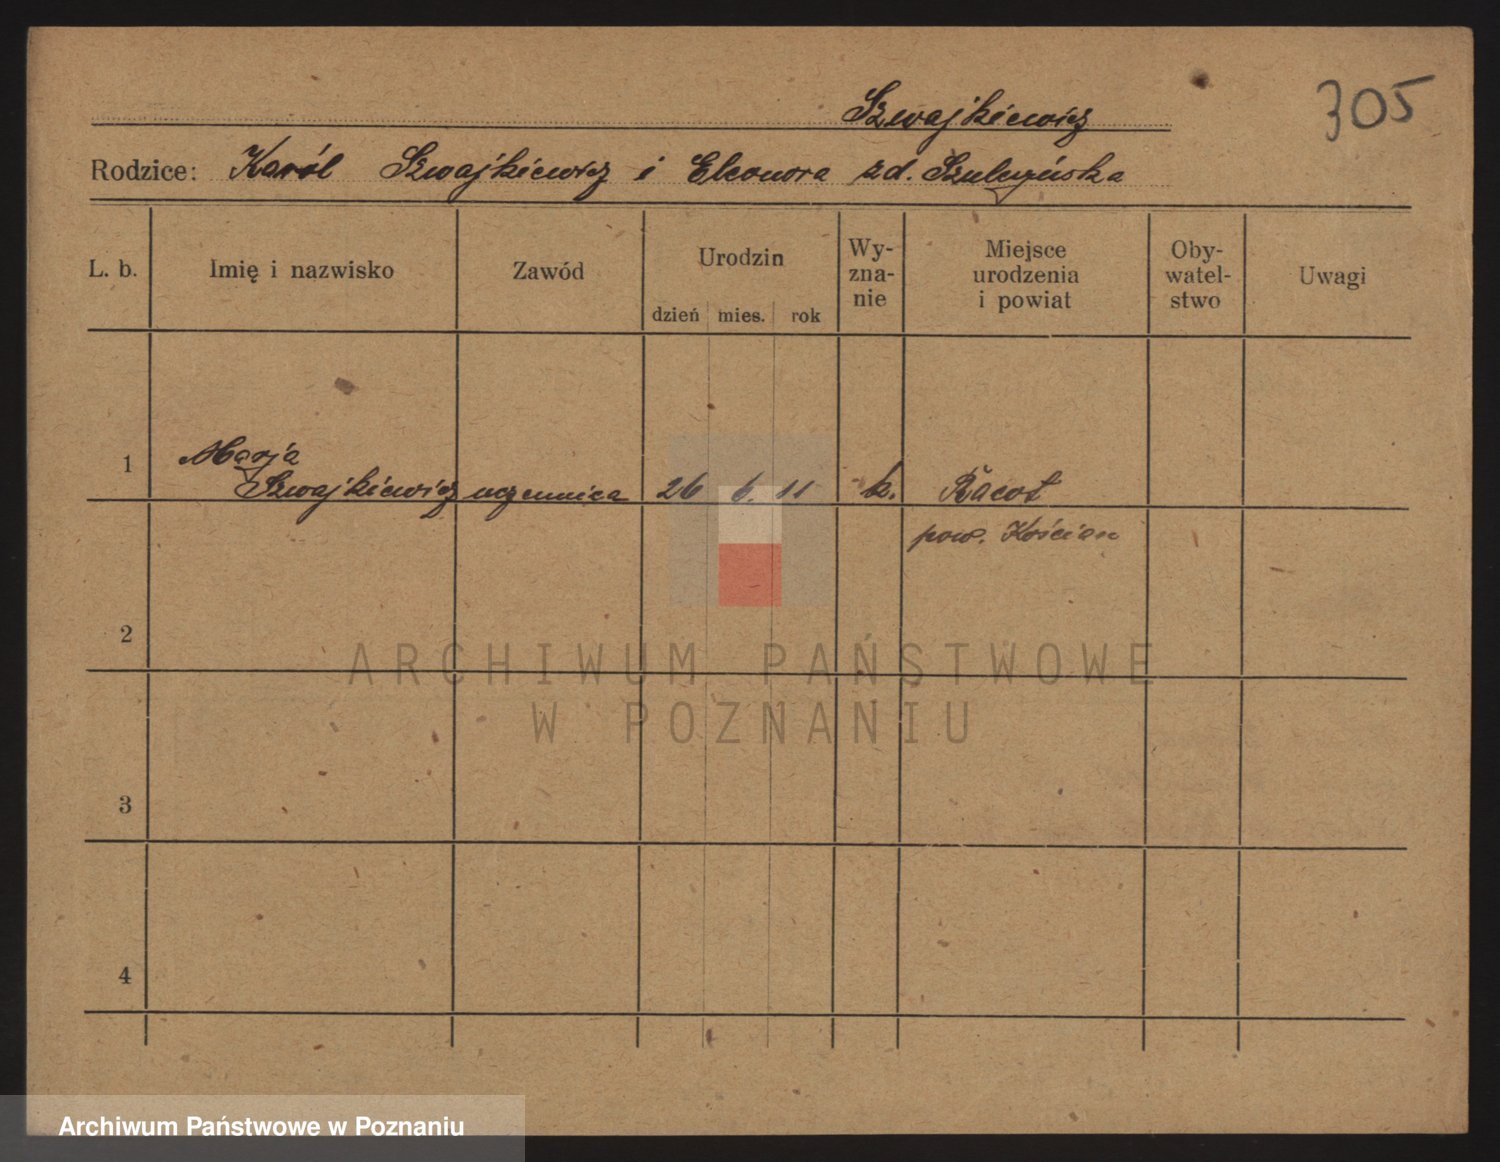 305
Szwajkiewicz
Rodzice: Karól Szwajkiewicz i Eleonora zd. Szulczyńska
L. b. Imię i nazwisko Zawód Urodzin dzień mies. rok Wy-zna-nie Miejsce urodzenia i powiat Oby-watel-stwo Uwagi
1 Marja
Szwajkiewicz uczennica 26 6. 11 k. Racot
pow. Kościan
2
ARCHIWUM PAŃSTWOWE
W POZNANIU
3
4
Archiwum Państwowe w Poznaniu